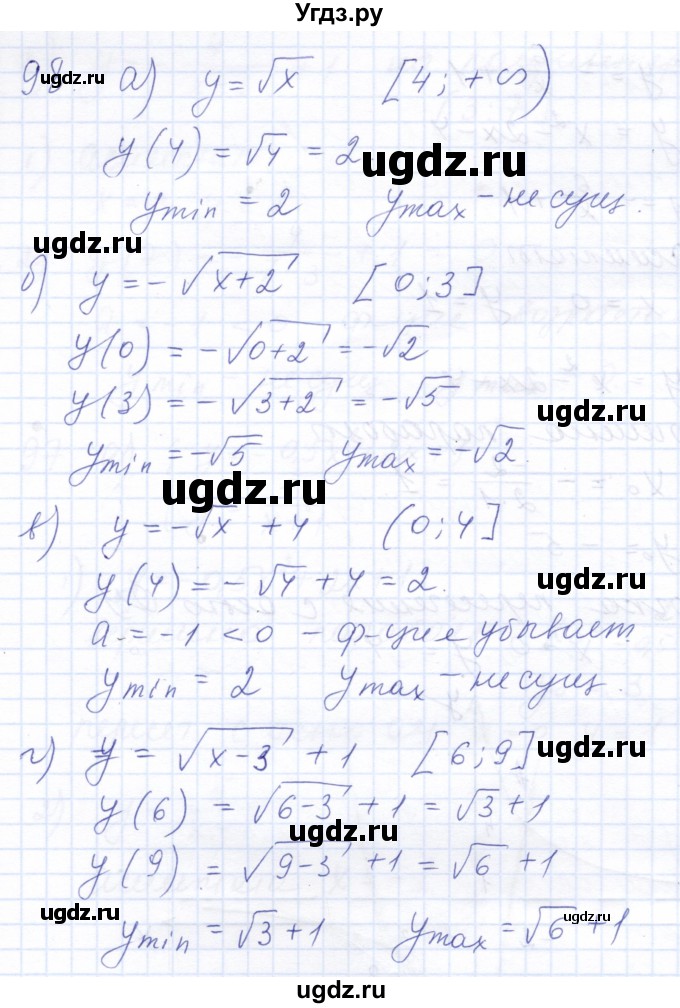 Угдз.ру
98. а) y = √x [4; +∞)
y(4) = √4 = 2.
ugdz.ru
ymin = 2 ymax – не сущ.
ugdz.ru
б) y = -√(x+2) [0; 3]
y(0) = -√(0+2) = -√2
y(3) = -√(3+2) = -√5
ugdz.ru
ymin = -√5 ymax = -√2.
ugdz.ru
в) y = -√x + 4 (0; 4]
y(4) = -√4 + 4 = 2.
ugdz.ru
a = -1 < 0 – ф-ция убывает.
ymin = 2 ymax – не сущ.
г) y = √(x-3) + 1 [6; 9]
ugdz.ru
y(6) = √(6-3) + 1 = √3 + 1
ugdz.ru
y(9) = √(9-3) + 1 = √6 + 1
ugdz.ru
ymin = √3 + 1 ymax = √6 + 1
ugdz.ru
ugdz.ru
ugdz.ru